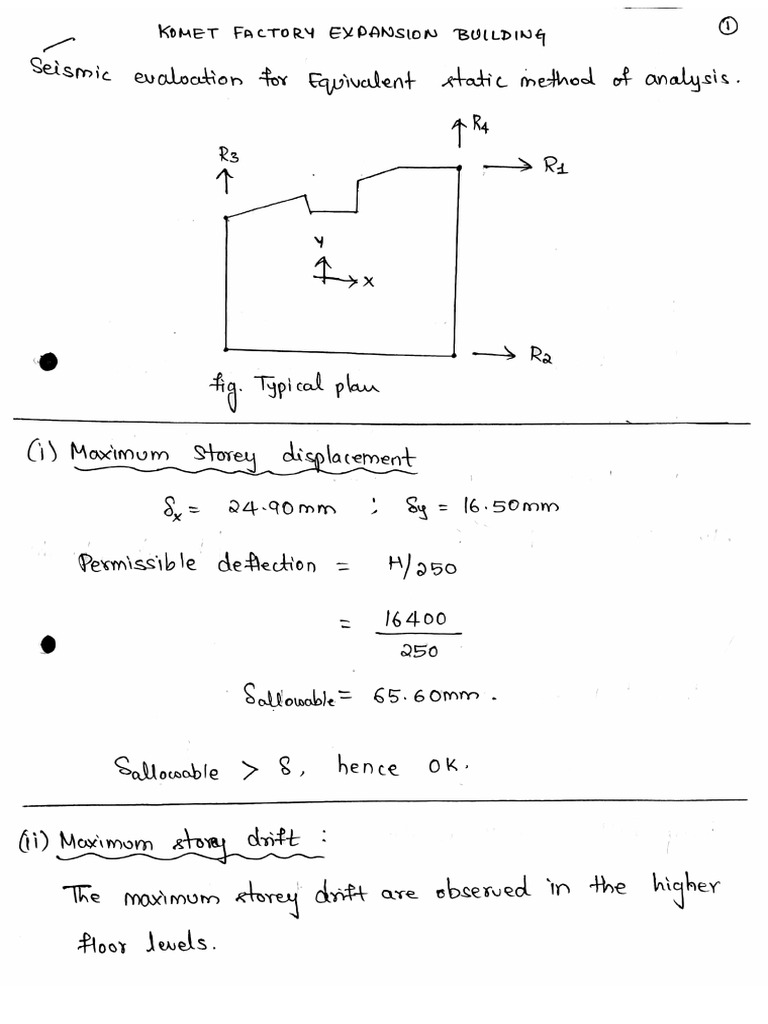 KOMET FACTORY EXPANSION BUILDING
①
Seismic evaluation for Equivalent static method of analysis.
R4
R3
R1
Y
X
R2
fig. Typical plan
(i) Maximum Storey displacement
δx = 24.90mm ; δy = 16.50mm
Permissible deflection = H/250
= 16400
250
δallowable = 65.60mm.
δallowable > δ, hence OK.
(ii) Maximum storey drift :
The maximum storey drift are observed in the higher
floor levels.